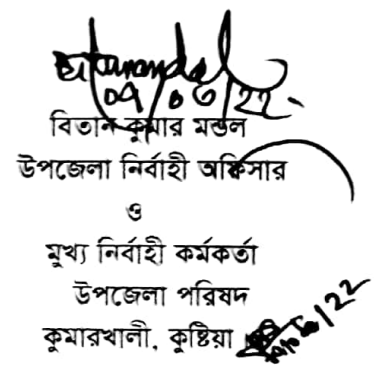 04/06/22
বিতান কুমার মন্ডল
উপজেলা নির্বাহী অফিসার
ও
মুখ্য নির্বাহী কর্মকর্তা
উপজেলা পরিষদ
কুমারখালী, কুষ্টিয়া